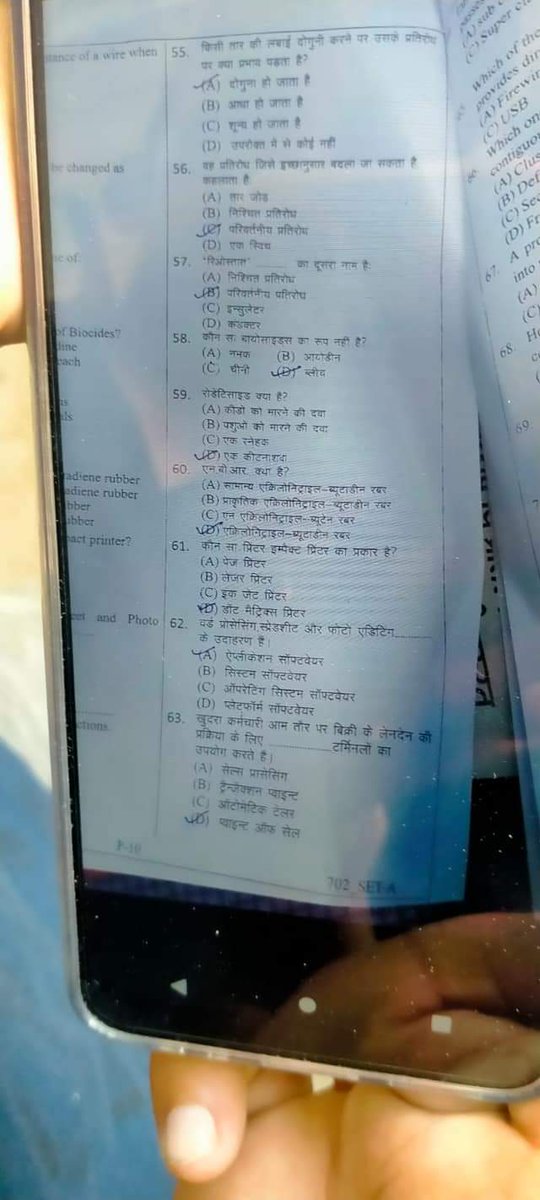 tance of a wire when
be changed as
e of:
of Biocides?
dine
each
ls
adiene rubber
adiene rubber
bber
ubber
act printer?
eet and Photo
ctions.
P-10
55. किसी तार की लम्बाई दोगुनी करने पर उसके प्रतिरोध
पर क्या प्रभाव पड़ता है?
(A) दोगुना हो जाता है
(B) आधा हो जाता है
(C) शून्य हो जाता है
(D) उपरोक्त में से कोई नहीं
56. वह प्रतिरोध जिसे इच्छानुसार बदला जा सकता है
कहलाता है
(A) तार जोड
(B) निश्चित प्रतिरोध
(C) परिवर्तनीय प्रतिरोध
(D) एक स्विच
57. "रिओस्तात" ______ का दूसरा नाम है:
(A) निश्चित प्रतिरोध
(B) परिवर्तनीय प्रतिरोध
(C) इन्सुलेटर
(D) कंडक्टर
58. कौन सा बायोसाइड्स का रूप नहीं है?
(A) नमक (B) आयोडीन
(C) चीनी (D) ब्लीच
59. रोडेंटिसाइड क्या है?
(A) कीड़ों को मारने की दवा
(B) पशुओं को मारने की दवा
(C) एक स्नेहक
(D) एक कीटनाशक
60. एन.बी.आर. क्या है?
(A) सामान्य एक्रिलोनिट्राइल-ब्यूटाडीन रबर
(B) प्राकृतिक एक्रिलोनिट्राइल-ब्यूटाडीन रबर
(C) एन एक्रिलोनिट्राइल-ब्यूटेन रबर
(D) एक्रिलोनिट्राइल-ब्यूटाडीन रबर
61. कौन सा प्रिंटर इम्पैक्ट प्रिंटर का प्रकार है?
(A) पेज प्रिंटर
(B) लेजर प्रिंटर
(C) इंक जेट प्रिंटर
(D) डॉट मैट्रिक्स प्रिंटर
62. वर्ड प्रोसेसिंग, स्प्रेडशीट और फोटो एडिटिंग______
के उदाहरण हैं।
(A) ऐप्लीकेशन सॉफ्टवेयर
(B) सिस्टम सॉफ्टवेयर
(C) ऑपरेटिंग सिस्टम सॉफ्टवेयर
(D) प्लेटफॉर्म सॉफ्टवेयर
63. खुदरा कर्मचारी आम तौर पर बिक्री के लेनदेन की
प्रक्रिया के लिए ______टर्मिनलों का
उपयोग करते हैं।
(A) सेल्स प्रोसेसिंग
(B) ट्रैन्जेक्शन प्वाइन्ट
(C) ऑटोमेटिक टेलर
(D) प्वाइन्ट ऑफ सेल
702_SET-A
(A) sub
(C) Super
Which of the
provides dir
(A) Firewir
(C) USB
Which on
contiguo
(A) Clus
(B) Def
(C) Sec
(D) Fr
67. A pr
into
(A)
(C)
68. H
69.